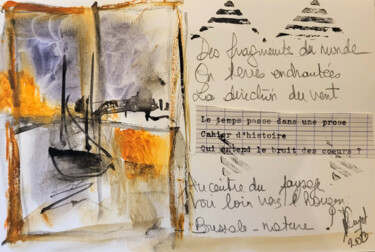 Des fragments du monde
En terres enchantées
La direction du vent
Le temps passe dans une prose
Cahier d'histoire
Qui entend le bruit des coeurs ?
Au centre du paysage
loin vers l'
Boussole - nature !